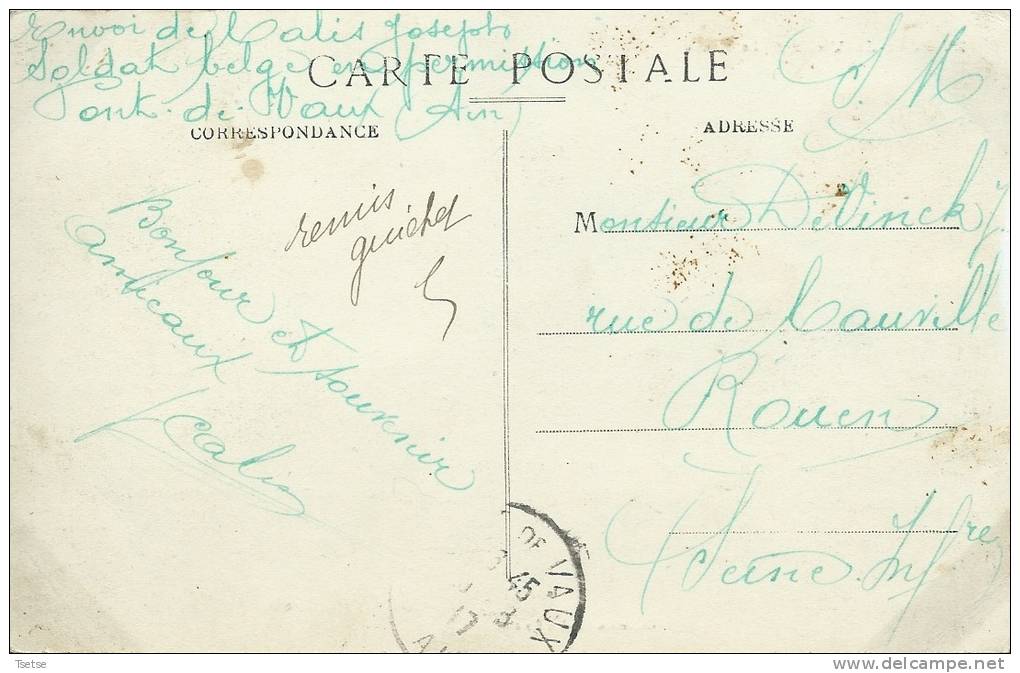 Envoi de Calis Joseph
Soldat belge en permission
Pont-de-Vaux (Ain)
CARTE POSTALE
S. M
CORRESPONDANCE
ADRESSE
Bonjour et souvenir
amicaux
Calis
remis
guichet
Monsieur DeVinck J.
rue de Cauville
Rouen
Seine Infre
DE VAUX
45
17
Tsetse
delcampe.net